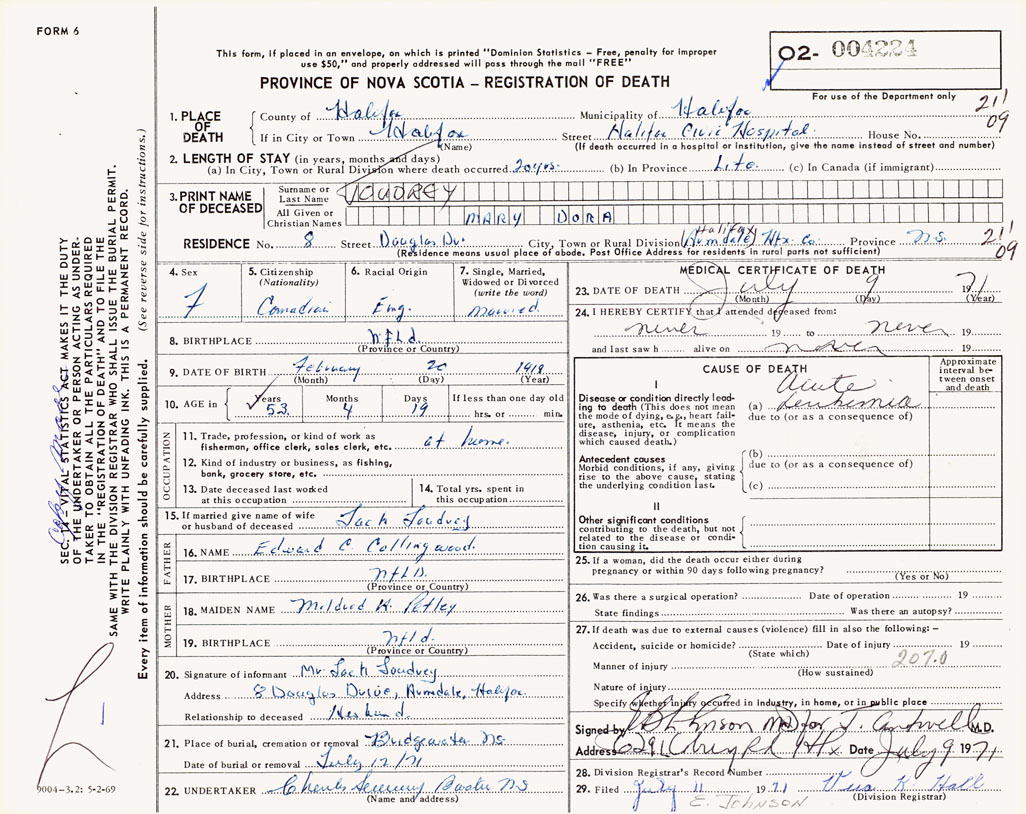 FORM 6
This form, if placed in an envelope, on which is printed "Dominion Statistics – Free, penalty for improper
use $50," and properly addressed will pass through the mail "FREE"
PROVINCE OF NOVA SCOTIA – REGISTRATION OF DEATH
02- 004224
For use of the Department only
211
09
1. PLACE OF DEATH
County of Halifax Municipality of Halifax
If in City or Town Halifax Street Halifax Civic Hospital House No.
(Name) (If death occurred in a hospital or institution, give the name instead of street and number)
2. LENGTH OF STAY (in years, months and days)
(a) In City, Town or Rural Division where death occurred 20 yrs. (b) In Province Life. (c) In Canada (if immigrant)
3. PRINT NAME OF DECEASED
Surname or Last Name JOUDREY
All Given or Christian Names MARY DORA
RESIDENCE No. 8 Street Douglas Dr. City, Town or Rural Division Halifax (Armdale) Hfx. Co Province N.S. 211
09
(Residence means usual place of abode. Post Office Address for residents in rural parts not sufficient)
4. Sex
F
5. Citizenship
(Nationality)
Canadian
6. Racial Origin
Eng.
7. Single, Married,
Widowed or Divorced
(write the word)
married.
8. BIRTHPLACE Nfld.
(Province or Country)
9. DATE OF BIRTH February 20 1918
(Month) (Day) (Year)
10. AGE in
Years 53
Months 4
Days 19
If less than one day old
hrs. or min.
OCCUPATION
11. Trade, profession, or kind of work as
fisherman, office clerk, sales clerk, etc. at home.
12. Kind of industry or business, as fishing,
bank, grocery store, etc.
13. Date deceased last worked
at this occupation
14. Total yrs. spent in
this occupation
15. If married give name of wife
or husband of deceased Jack Joudrey
FATHER
16. NAME Edward C. Collingwood.
17. BIRTHPLACE Nfld.
(Province or Country)
MOTHER
18. MAIDEN NAME Mildred K.
19. BIRTHPLACE Nfld.
(Province or Country)
20. Signature of informant Mr. Jack Joudrey
Address 8 Douglas Drive, Armdale, Halifax.
Relationship to deceased Husband.
21. Place of burial, cremation or removal Bridgewater NS
Date of burial or removal July 12/71
22. UNDERTAKER NS
(Name and address)
MEDICAL CERTIFICATE OF DEATH
23. DATE OF DEATH July 9 1971
(Month) (Day) (Year)
24. I HEREBY CERTIFY that I attended deceased from:
never 19 to never 19
and last saw h alive on never 19
CAUSE OF DEATH
Approximate
interval be-
tween onset
and death
I
Disease or condition directly lead-
ing to death (This does not mean
the mode of dying, e.g., heart fail-
ure, asthenia, etc. It means the
disease, injury, or complication
which caused death.)
(a) Acute
Leukemia
due to (or as a consequence of)
Antecedent causes
Morbid conditions, if any, giving
rise to the above cause, stating
the underlying condition last.
(b)
due to (or as a consequence of)
(c)
II
Other significant conditions
contributing to the death, but not
related to the disease or condi-
tion causing it.
25. If a woman, did the death occur either during
pregnancy or within 90 days following pregnancy?
(Yes or No)
26. Was there a surgical operation? Date of operation 19
State findings Was there an autopsy?
27. If death was due to external causes (violence) fill in also the following: –
Accident, suicide or homicide? Date of injury 19
(State which)
Manner of injury 207.0
(How sustained)
Nature of injury
Specify whether injury occurred in industry, in home, or in public place
Signed by MD for M.D.
Address Hfx Date July 9 1971
28. Division Registrar's Record Number
29. Filed July 11 1971 K Hall
(Division Registrar)
E. JOHNSON
SEC. 14 – VITAL STATISTICS ACT MAKES IT THE DUTY
OF THE UNDERTAKER OR PERSON ACTING AS UNDER-
TAKER TO OBTAIN ALL THE PARTICULARS REQUIRED
IN THE "REGISTRATION OF DEATH" AND TO FILE THE
SAME WITH THE DIVISION REGISTRAR WHO SHALL ISSUE THE BURIAL PERMIT.
WRITE PLAINLY WITH UNFADING INK. THIS IS A PERMANENT RECORD.
Every item of information should be carefully supplied. (See reverse side for instructions.)
9004-3.2: 5-2-69